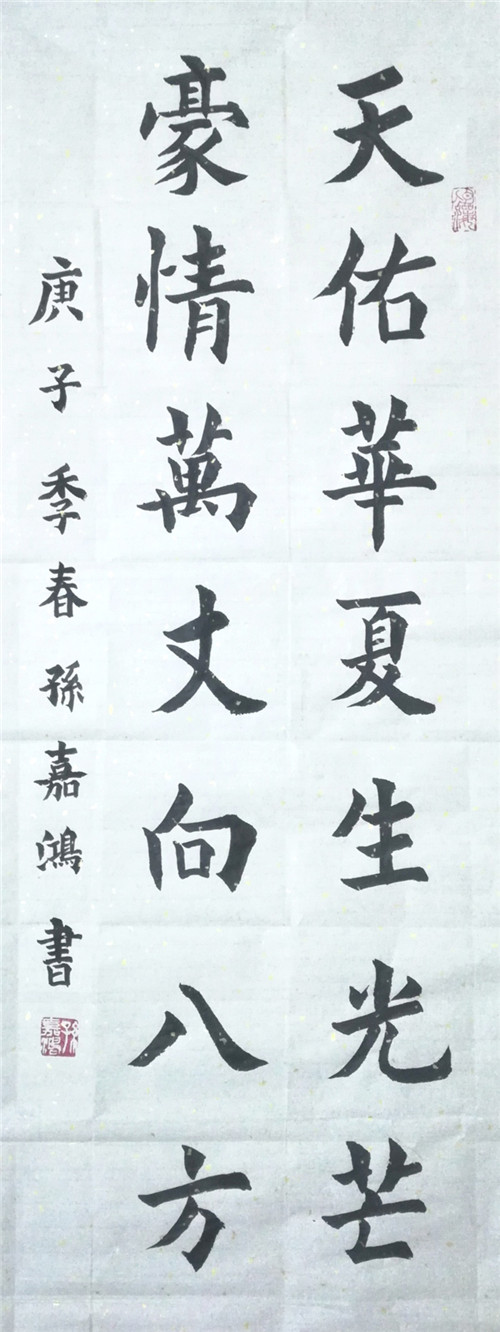 天佑華夏生光芒
豪情萬丈向八方
庚子季春孫嘉鴻書
孫嘉鴻